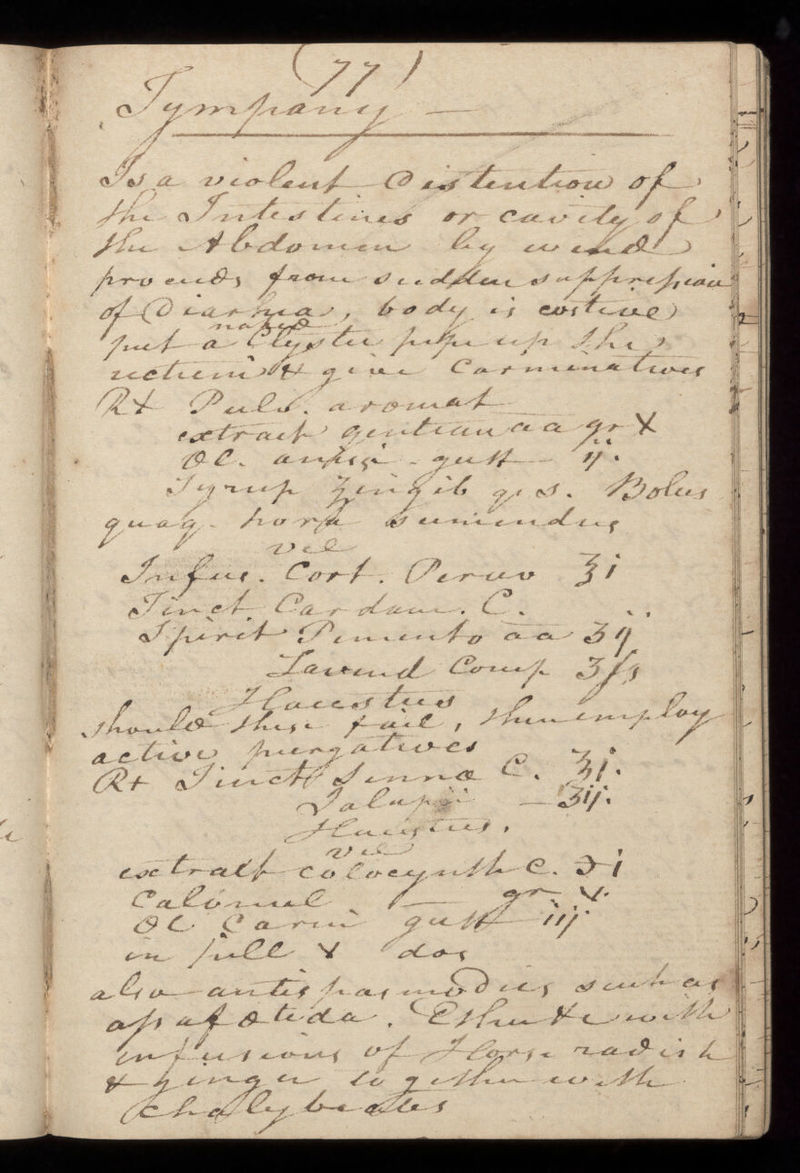 (77)
Tympany —
Is a violent Distention of
the Intestines or cavity of
the Abdomen by wind
proceeds from sudden suppression
of Diarhea, body is costive
naked
put a Clyster pipe up the
rectum & give Carminatives
Rx Pulv. aromat
extract gentian aa gr X
Ol. anisi - gutt - ij.
Syrup Zingib q. s. Bolus
quaq. hora sumendus
vel
Infus. Cort. Peruv ℥i
Tinct Cardam. C.
Spirit Pimento aa ʒij
Lavend Comp ʒſs
Haustus
should these fail, then employ
active purgatives
Rx Tinct Senna C. ℥i.
Jalapii — ʒij.
Haustus.
vel
extract Colocynth C. ℈i
Calomel — gr. v.
Ol Carui gutt iij.
in pill X dos
also antispasmodics such as
assafœtida. Ether &c with
infusions of Horse radish
& ginger together with
Chalybeates